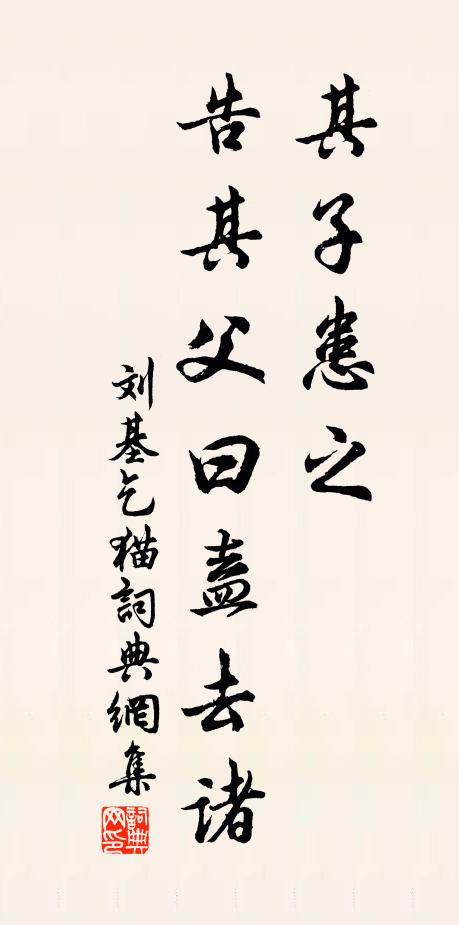 其子患之
告其父曰盍去诸
刘基乞猫詞典網集
詞典网印